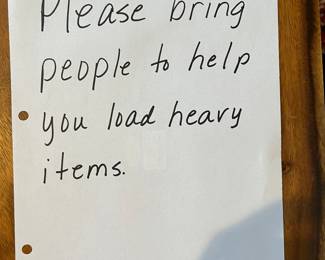 Please bring
people to help
you load heavy
items.